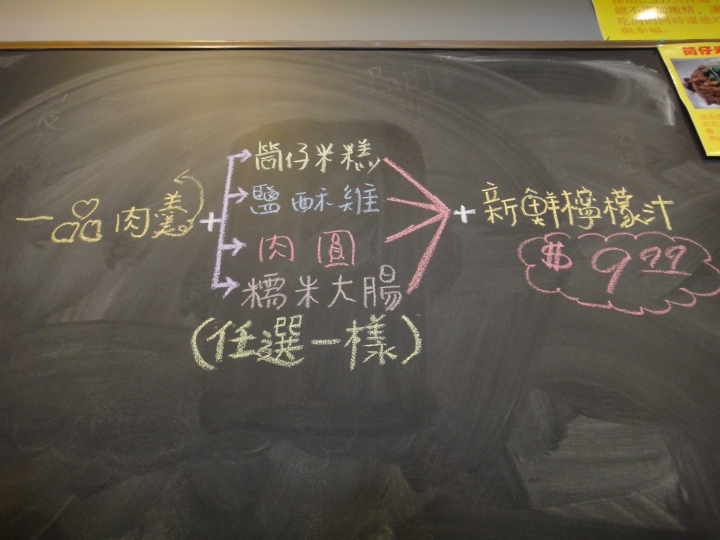 筒仔米糕
鹽酥雞
一品肉羹 + 肉圓 + 新鮮檸檬汁
$9.99
糯米大腸
(任選一樣)
筒仔米